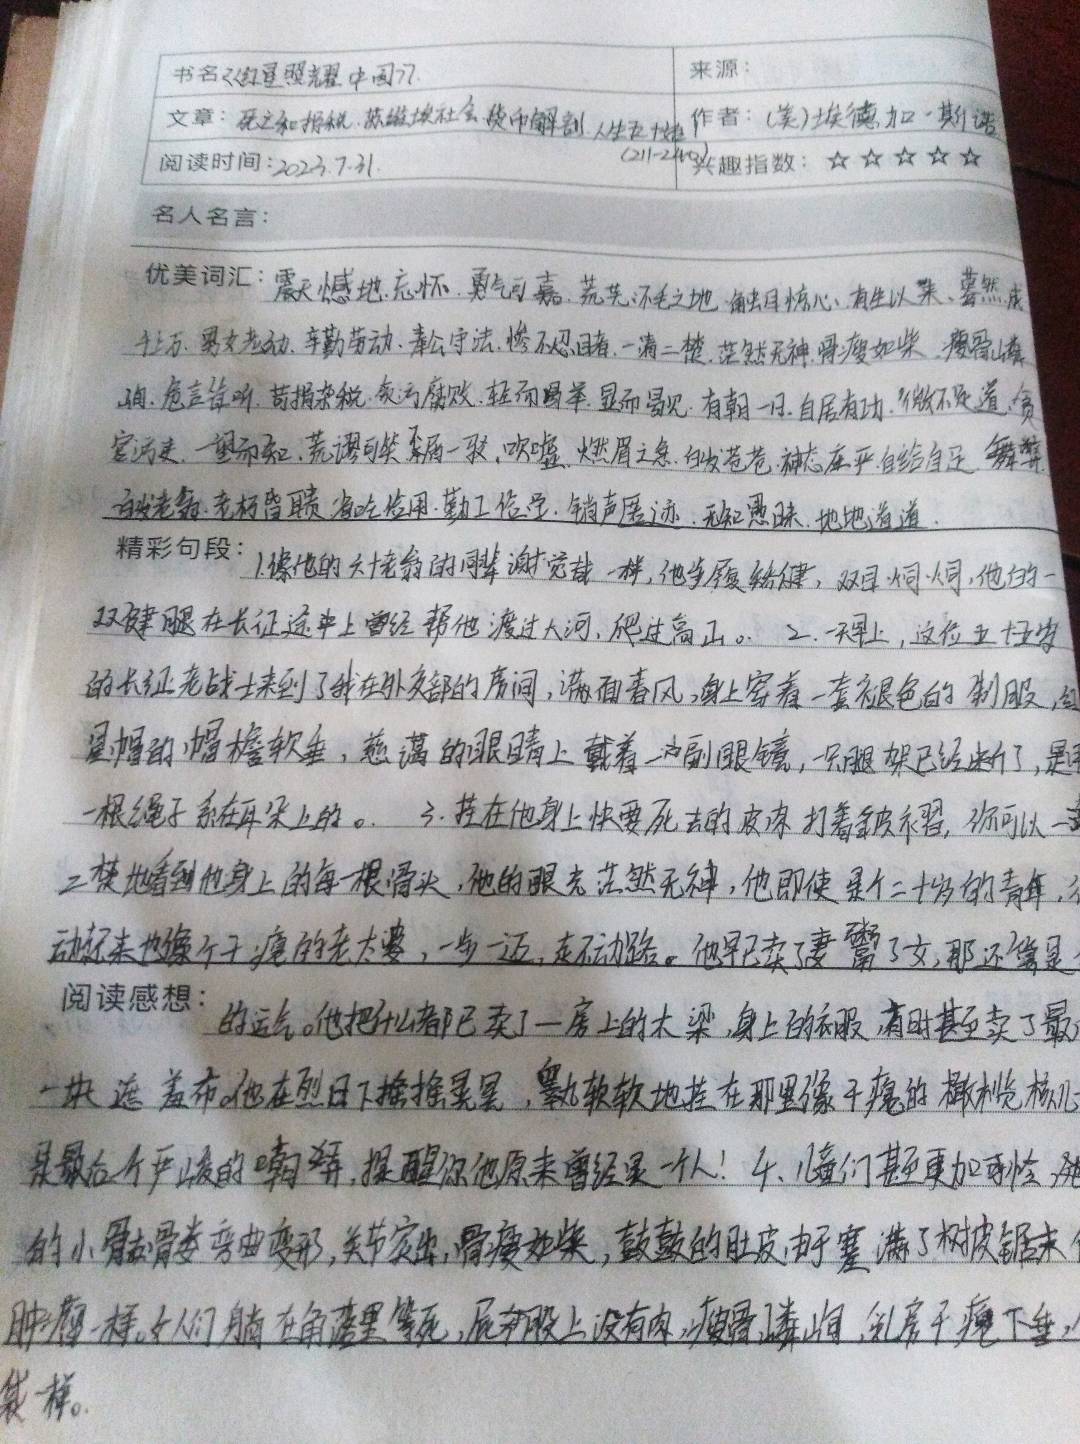 书名：《红星照耀中国》 来源：
文章：死亡和捐税.苏维埃社会.货币解剖.人生五十始 作者：（美）埃德加·斯诺
(211-240)
阅读时间：2023.7.31. 兴趣指数：☆☆☆☆☆
名人名言：
优美词汇：震天憾地.忘怀.勇气可嘉.荒芜.不毛之地.触目惊心.有生以来.蓦然.成
千上万.男女老幼.辛勤劳动.奉公守法.惨不忍睹.一清二楚.茫然无神.骨瘦如柴.瘦骨嶙
峋.危言耸听.苛捐杂税.贪污腐败.轻而易举.显而易见.有朝一日.自居有功.微不足道.贪
官污吏.一望而知.荒谬可笑.吹嘘.燃眉之急.白发苍苍.神态庄严.自给自足.舞弊.
白发老翁.老朽昏聩.省吃俭用.勤工俭学.销声匿迹.无知愚昧.地地道道.
精彩句段：1.像他的六十老翁的同辈谢觉哉一样，他步履矫健，双目炯炯，他的一
双健腿在长征途中上曾经帮他渡过大河，爬过高山。 2.一天早上，这位五十五岁
的长征老战士来到了我在外交部的房间，满面春风，身上穿着一套褪色的制服，红
星帽的帽檐软垂，慈蔼的眼睛上戴着一副眼镜，一只腿架已经断了，是用
一根绳子系在耳朵上的。 3.挂在他身上快要死去的皮肉打着皱褶，你可以一清
二楚地看到他身上的每一根骨头，他的眼光茫然无神，他即使是个二十岁的青年，行
动起来也像个干瘪的老太婆，一步一迈，走不动路。他早已卖了妻鬻了女，那还算是他
阅读感想：的运气。他把什么都已卖了—房上的木梁，身上的衣服，有时甚至卖了最后
一块遮羞布。他在烈日下摇摇晃晃，睾丸软软地挂在那里像干瘪的橄榄核儿
是最后一个严峻的嘲弄，提醒你他原来曾经是一个人！4、儿童们甚至更加可怜，他
的小骷髅弯曲变形，关节突出，骨瘦如柴，鼓鼓的肚皮由于塞满了树皮锯末像
肿瘤一样。女人们躺在角落里等死，屁股上没有肉，瘦骨嶙峋，乳房干瘪下垂，
袋一样。